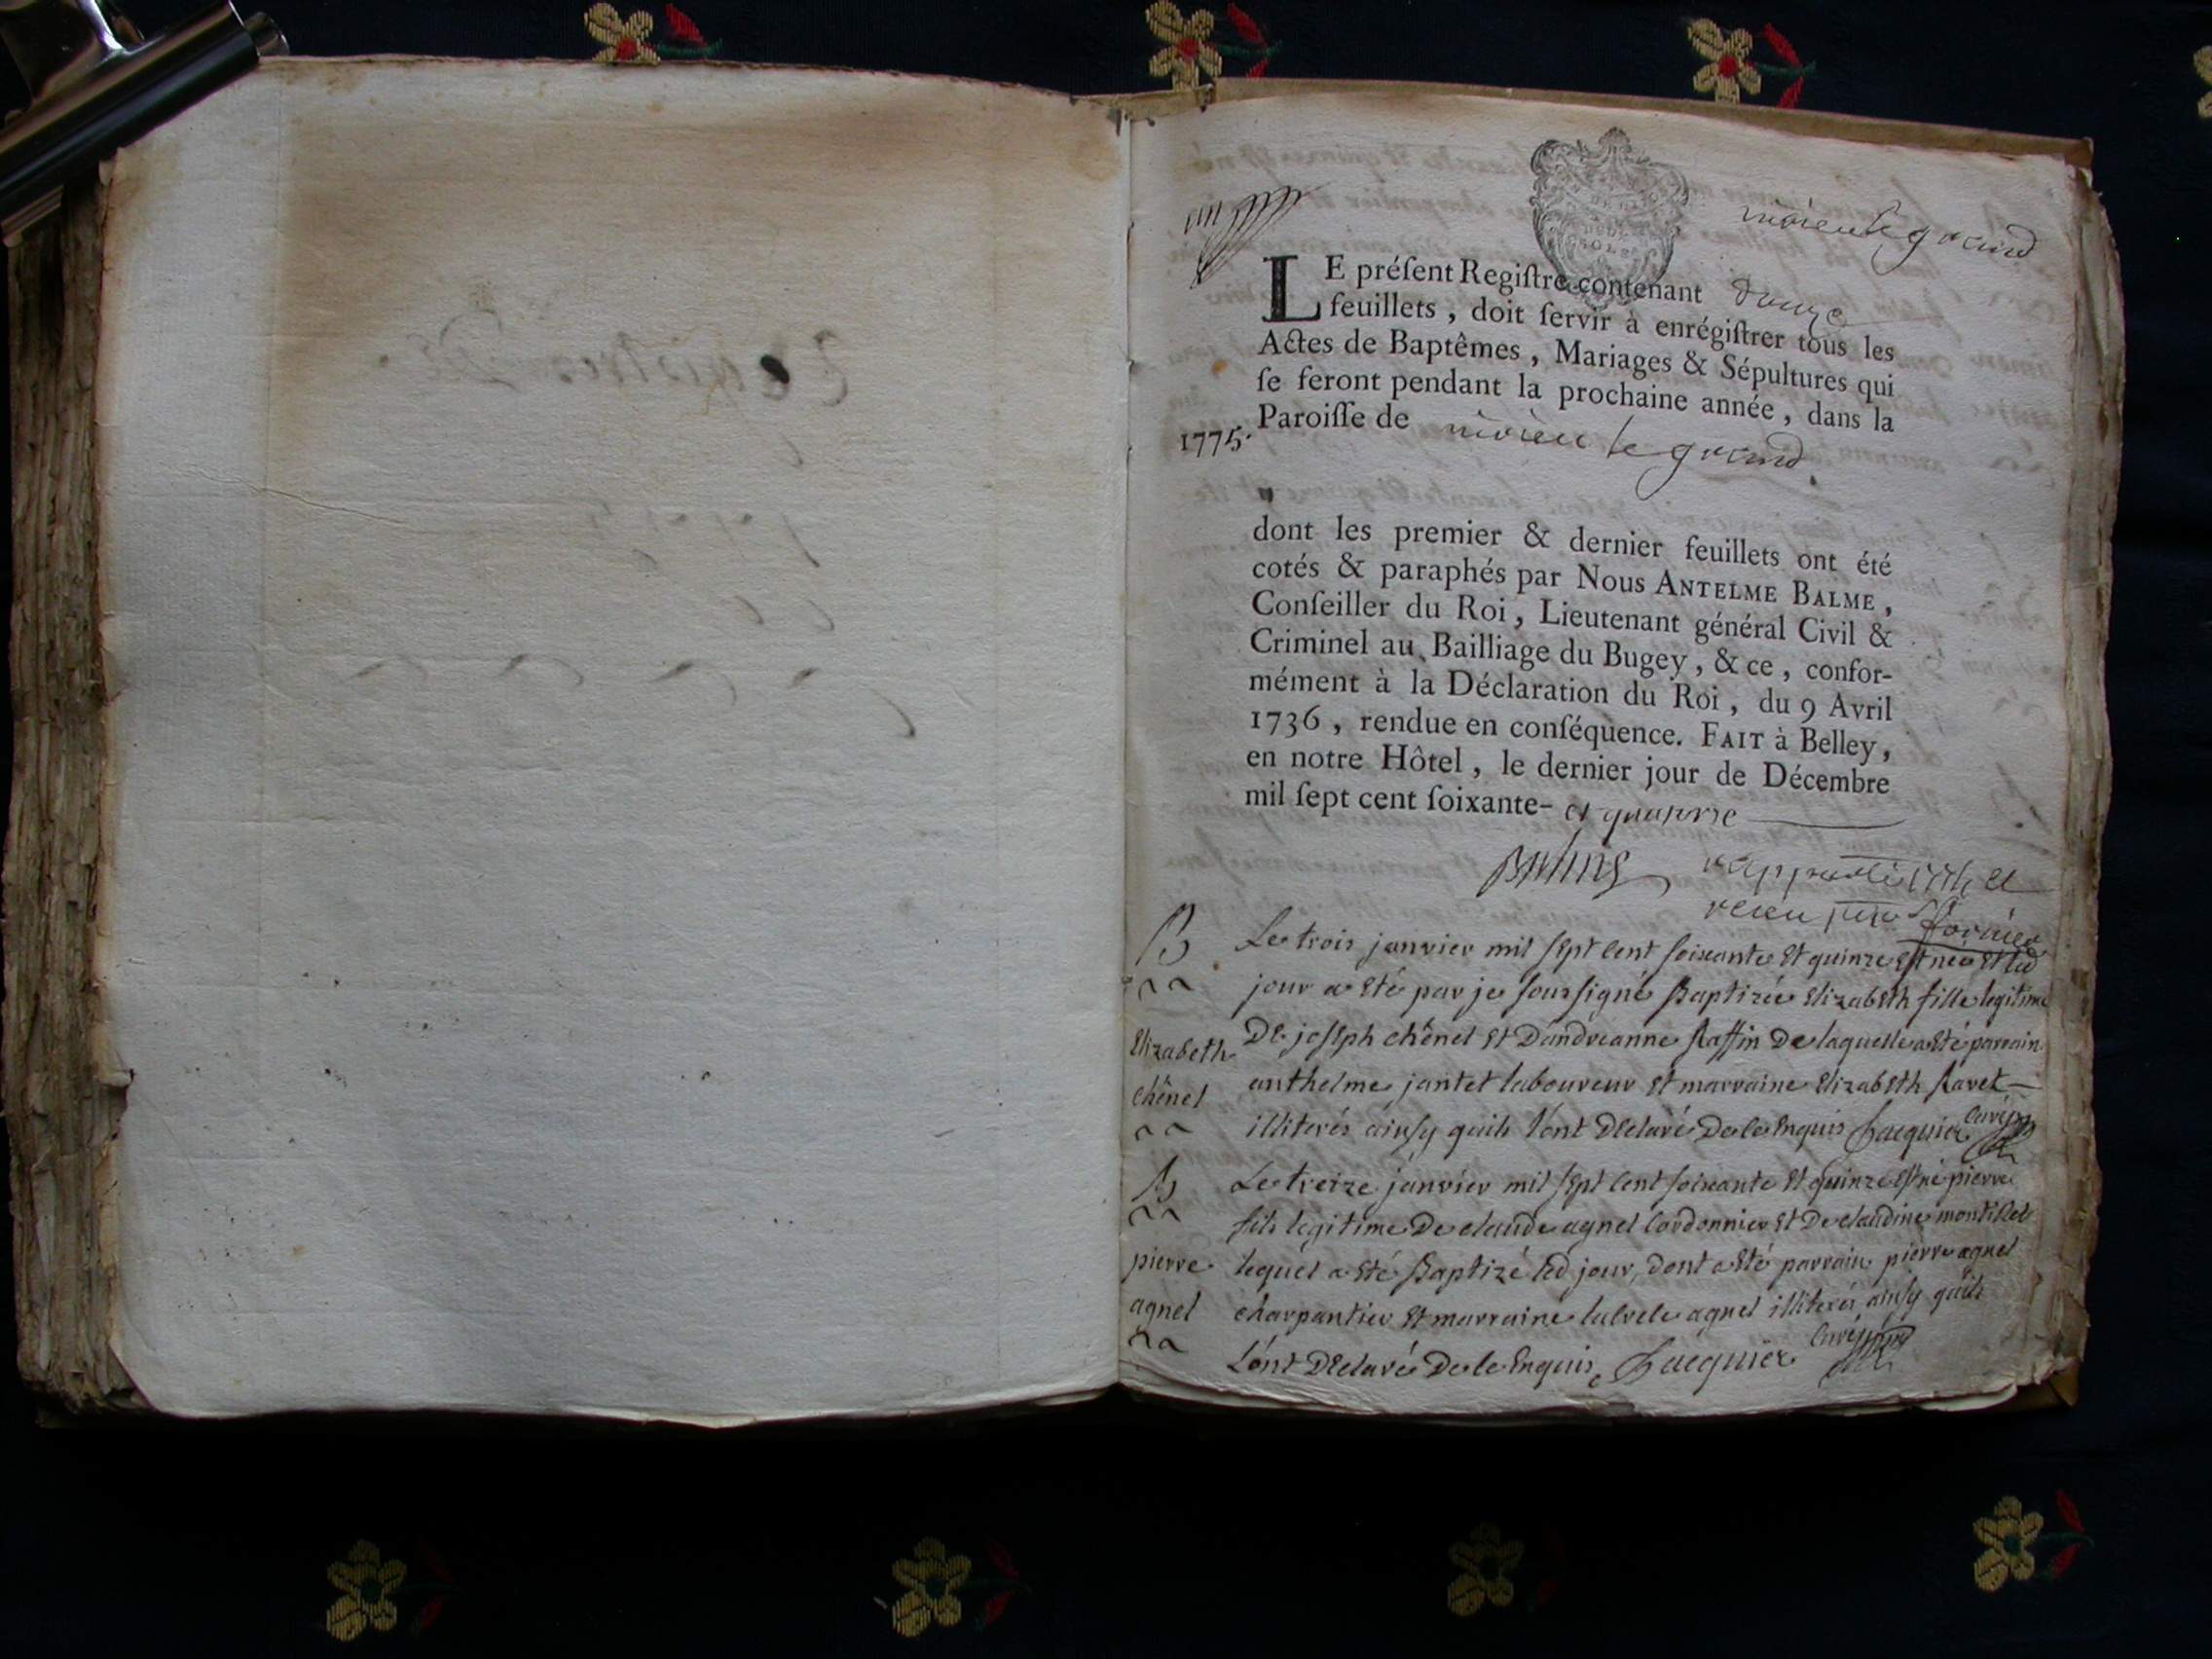 virieu le grand
LE préſent Regiſtre contenant douze
feuillets, doit ſervir à enrégiſtrer tous les
Actes de Baptêmes, Mariages & Sépultures qui
ſe feront pendant la prochaine année, dans la
1775. Paroiſſe de virieu le grand
dont les premier & dernier feuillets ont été
cotés & paraphés par Nous ANTELME BALME,
Conſeiller du Roi, Lieutenant général Civil &
Criminel au Bailliage du Bugey, & ce, confor-
mément à la Déclaration du Roi, du 9 Avril
1736, rendue en conſéquence. FAIT à Belley,
en notre Hôtel, le dernier jour de Décembre
mil ſept cent ſoixante- et quatorze
Balme
B
Elizabeth
chênel
Le trois janvier mil sept cent soixante et quinze est née et led
jour a eté par je soussigné Baptizée Elizabeth fille legitime
De joseph chênel et D'andréanne Raffin De laquelle a eté parrain
anthelme jantet laboureur et marraine Elizabeth Ravet
illiterés ainsy quils l'ont Declaré De ce Enquis Jacquier curé
B
pierre
agnel
Le treize janvier mil sept cent soixante et quinze est né pierre
fils legitime De claude agnel Cordonnier et De claudine
lequel a eté Baptizé led jour, dont a eté parrain pierre agnel
charpantier et marraine agnel illiterés ainsy quils
l'ont Declaré De ce Enquis Jacquier curé